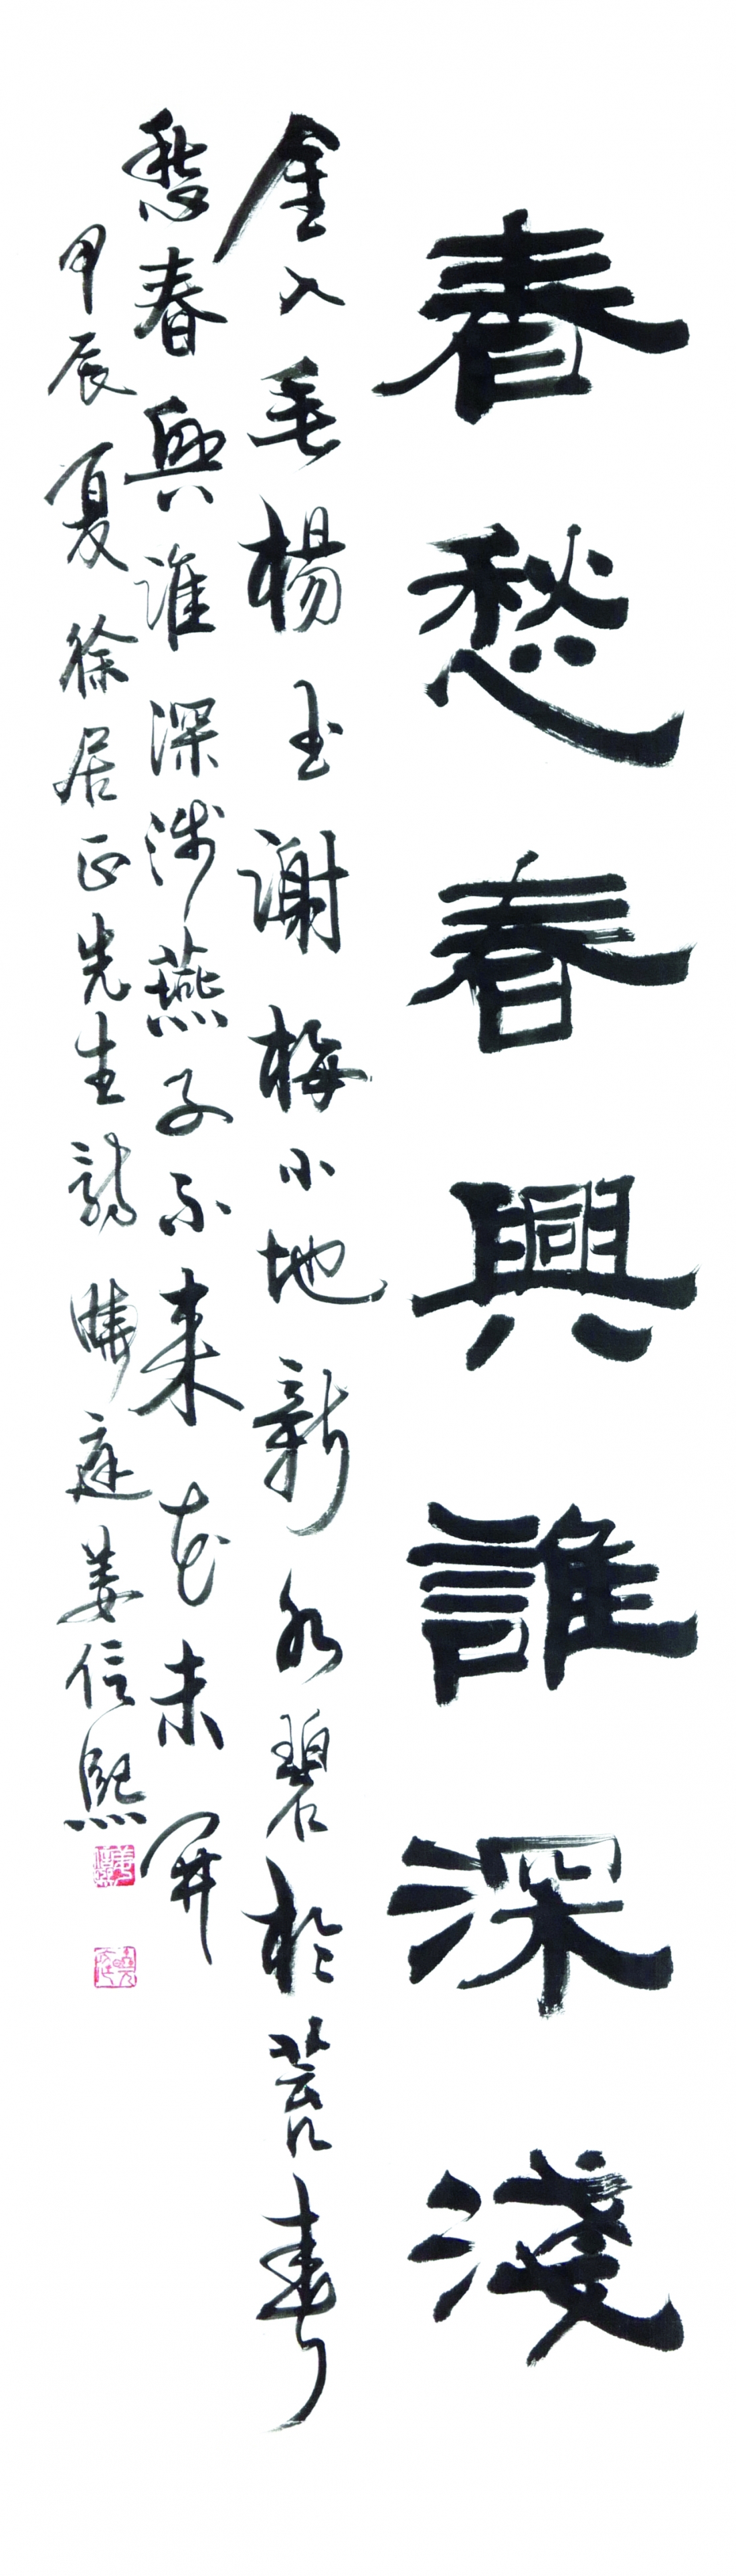 春愁春興誰深淺
金入垂楊玉謝梅小池新水碧於苔春
愁春興誰深淺燕子不來花未開
甲辰夏徐居正先生詩曉庭姜信熙